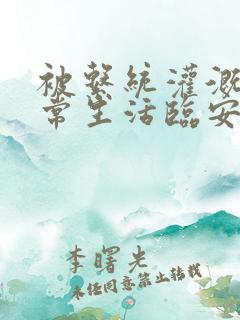 被系統灌溉
常生活臨安
李曙光
未经同意禁止转载